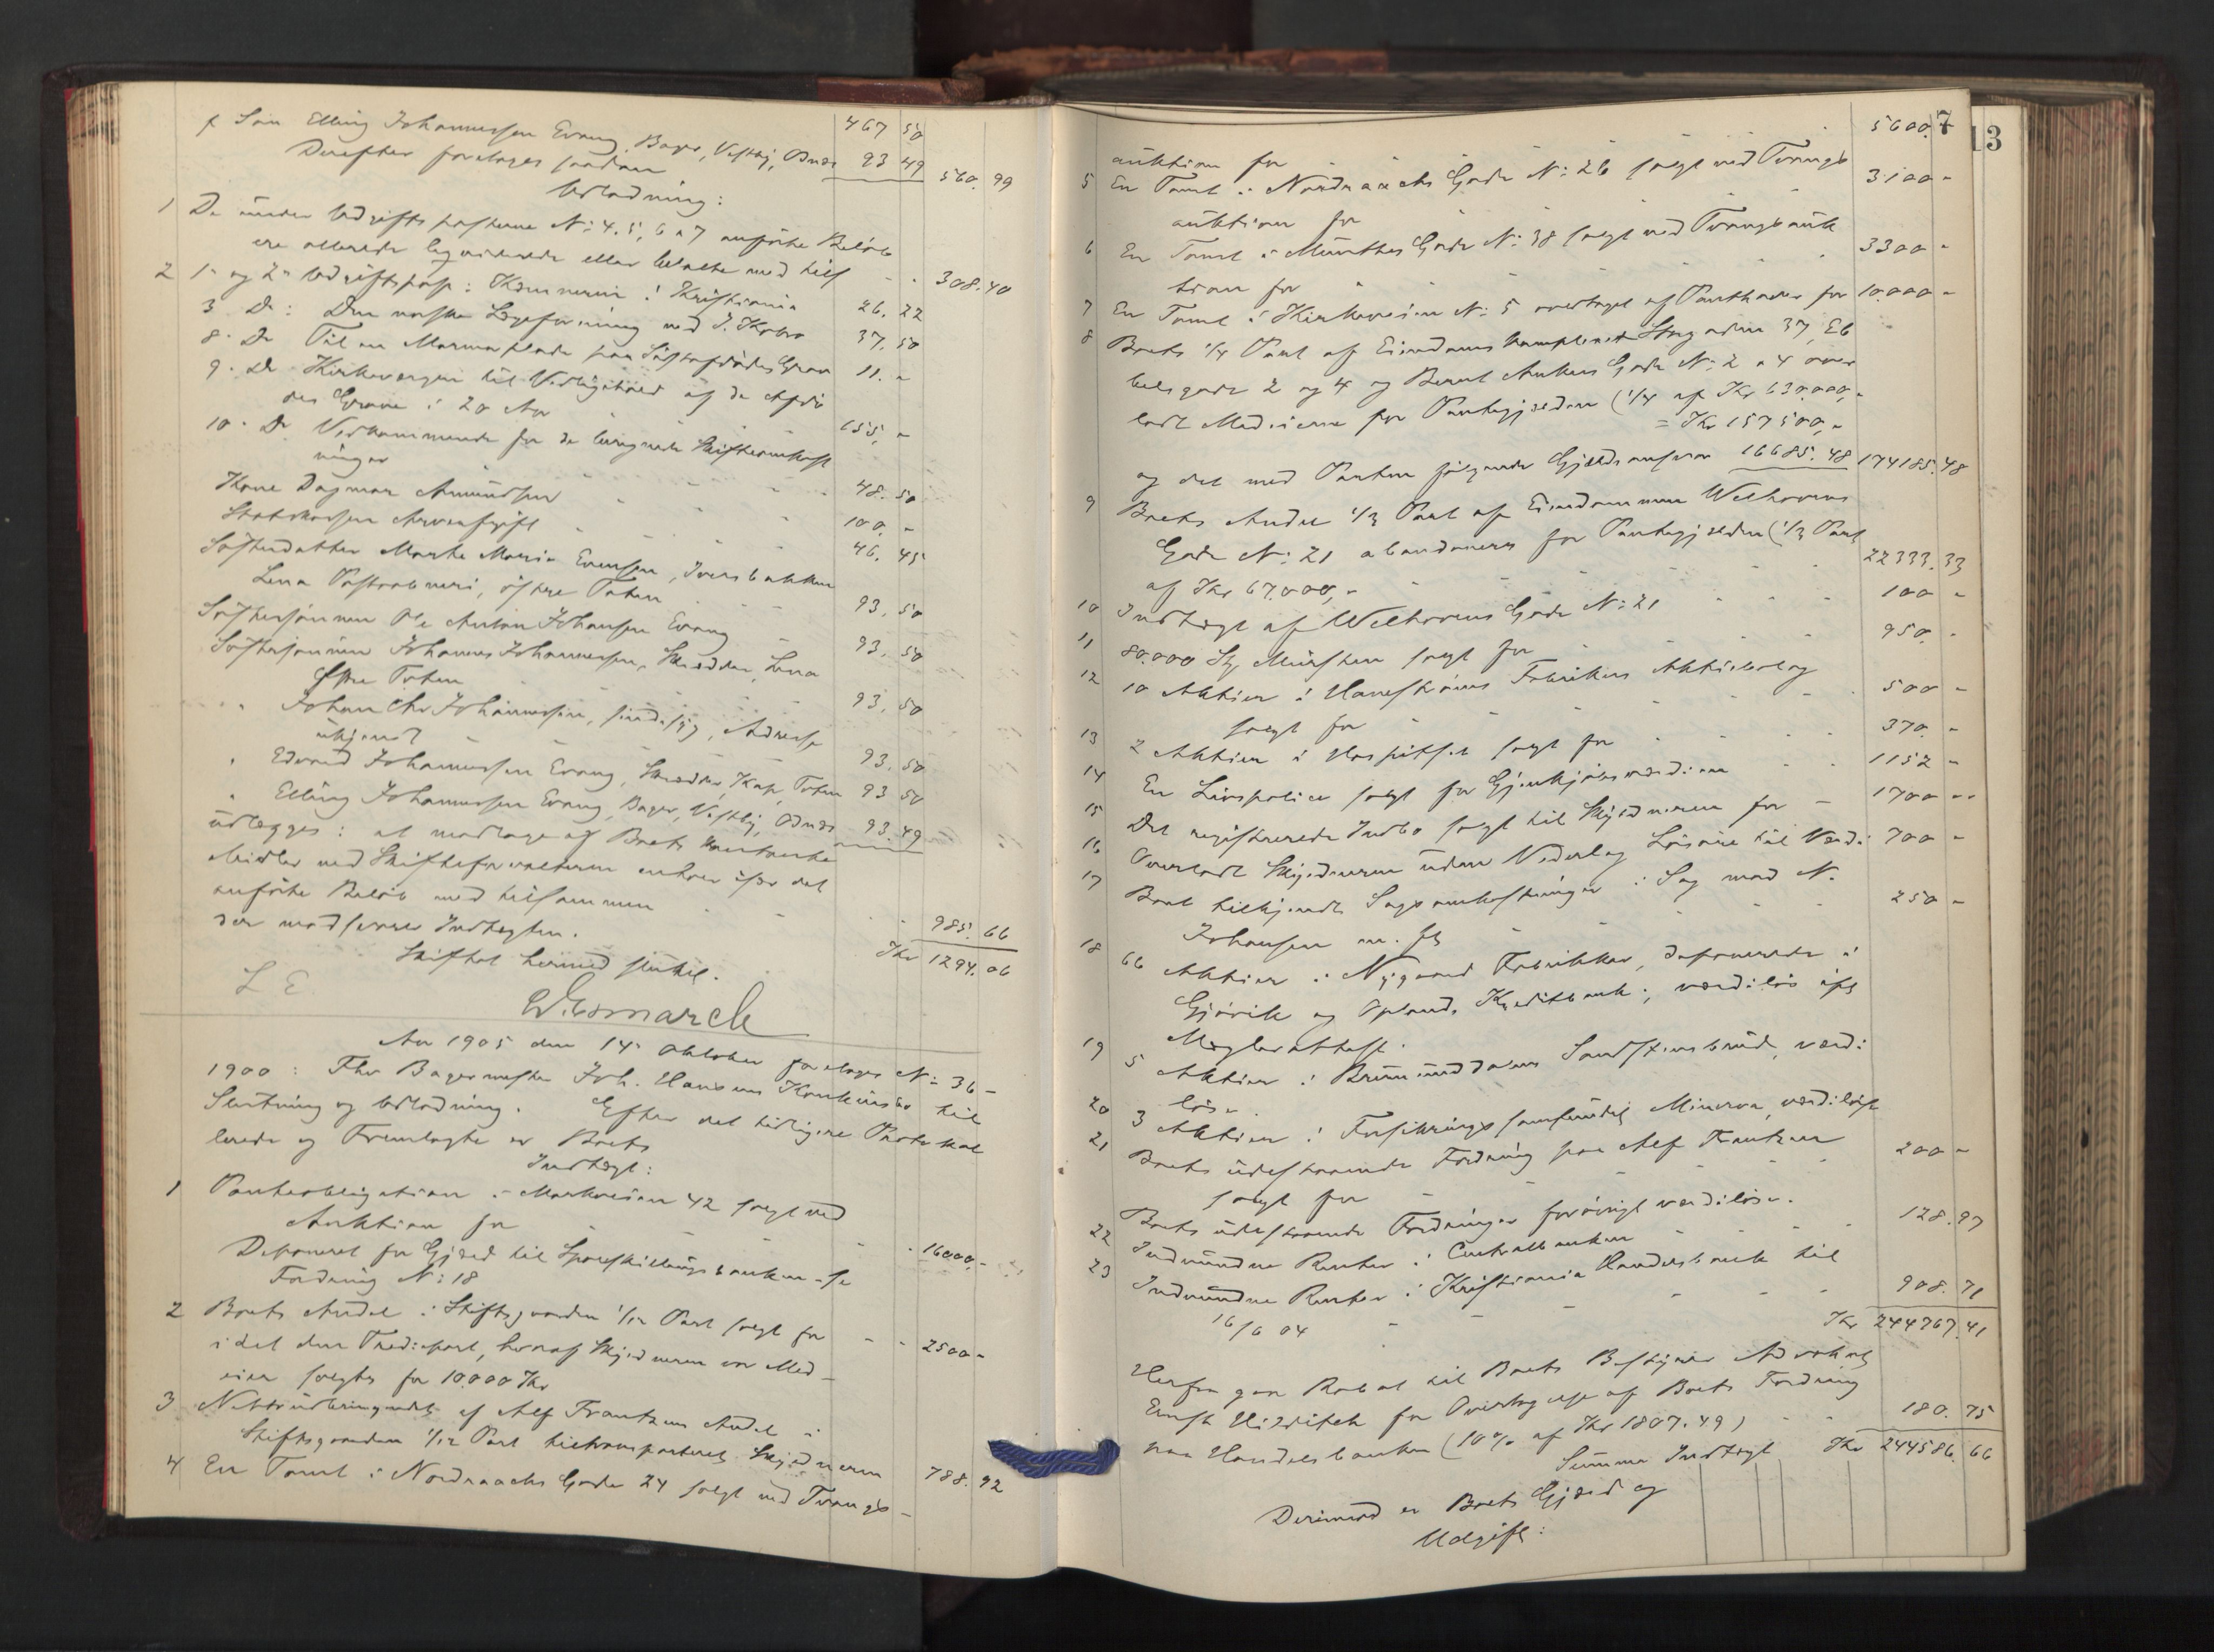 467 50
f Søn Elling Johannessen Evang, Bager, Vestby, Odnæs 93 49 560. 99
Derefter foretoges saadan
Udlodning:
1 De under Udgiftsposterne N: 4. 5, 6 a 7 anførte Beløb
ere allerede liqviderede eller betalte med tils - - 308. 40
2 1- og 2- Udgiftspost: Kæmneren i Kristiania 26. 22
3 Do: Den norske Lægeforening ved J. 37. 50
8. Do Til en Marmorplade paa Søsterafdødes Grav 11. -
9. Do Kirkevergen til Vedligehold af de Afdø
des Grave i 20 Aar 155. -
10. Do Vedkommende for de beregnede Skifteomkost
ninger 48. 50
Kone Dagmar Amundsen 100. -
Statskassen Arveafgift 46. 45
Søsterdatter Marthe Marie Evensen, Iversbakken
Lena Postaabneri, østre Toten 93. 50
Søstersønnen Ole Anton Johansen Evang 93. 50
Søstersønnen Johannes Johannessen, Skrædder, Lena
Østre Toten 93. 50
" Johan Chr Johannessen, sindssyg, Adresse
ukjendt 93. 50
" Edvard Johannessen Evang, Skrædder, Kap, Toten 93 50
" Elling Johannessen Evang, Bager, Vestby, Odnæs 93. 49
udlægges: at modtage af Boets kontante
Midler ved Skifteforvalteren enhver især det
anførte Beløb med tilsammen - - - 985. 66
der modsvarer Indtægten. Kr 1294. 06
Skiftet hermed sluttet.
L E.
Aar 1905 den 14- Oktober foretoges N: 36 -
1900: Fhv Bagermester Joh. Hansens Konkursbo til
Slutning og Udlodning. Efter det tidligere Protokol
lerede og Fremlagte er Boets
Indtægt:
1 Panteobligation i Markveien 42 solgt ved
Auktion for - - - 16000. -
Deponeret for Gjæld til Sparskillingsbanken - se
Fordring N: 18
2 Boets Andel i Skiftsgaarden 1/12 Part solgt for - - 2500 -
idet den Trediepart, hvoraf Skyldneren var Med-
eier solgtes for 10.000 Kr
3 Nettoudbringendet af Alf Frantzens Andel i
Skiftsgaarden 1/12 Part tiltransporteret Skyldneren 788. 92
4 En Tomt i Nordraachs Gade 24 solgt ved Tvangs-
7 13
auktion for - - - 5600. -
5 En Tomt i Nordraachs Gade N: 26 solgt ved Tvangs
auktion for - - - 3100 -
6 En Tomt i Munthes Gade N: 38 solgt ved Tvangsauk
tion for - - - 3300 -
7 En Tomt i Kirkeveien N: 5 overtaget af Panthaver for 10.000 -
8 Boets 1/4 Part af Eiendomskomplexet Storgaden 37, Eb
belsgade 2 og 4 og Bernt Ankers Gade N: 2 a 4 over
ladt Medeierne for Pantegjælden (1/4 af Kr 630.000, -
= Kr 157500, -
og det med Panten følgende Gjældsansvar 16685. 48 174185. 48
9 Boets Andel 1/3 Part af Eiendommen Welhavens
Gade N: 21 abandoneres for Pantegjælden (1/3 Part
af Kr 67.000, - - - - 22333. 33
10 Indtægt af Welhavens Gade N: 21 - - - 100 -
11 80.000 St. Mursten solgt for - - - 950. -
12 10 Aktier i Fabrikers Aktiebolag
solgt for - - - 500 -
13 2 Aktier i Hospitset solgt for - - - 370. -
14 En Livspolice solgt for Gjenkjøbsværdien - - 1152 -
15 Det registrerede Indbo solgt til Skyldneren for - 1700 -
16 Overladt Skyldneren uden Vederlag Løsøre til Værdi 700 -
17 Boet tilkjendte Sagsomkostninger i Sag mod N.
Johansen m. fl - - - 250 -
18 66 Aktier i Nygaard Fabrikker, deponerede i
Gjøvik og Oplands Kreditbank, værdiløs ifl
Meglerattest.
19 5 Aktier i Brumunddalens Sandstensbrud, værdi
løse.
20 3 Aktier i Forsikringsselskabet Minerva, værdiløse
21 Boets udestaaende Fordring paa Alf Frantzen
solgt for - - - 200 -
22 Boets udestaaende Fordringer forøvrigt værdiløse.
Indvundne Renter i Centralbanken - - 128. 97
23 Indvundne Renter i Kristiania Handelsbank til
16/6 04 - - - 908. 71
Kr 244767. 41
Herfra gaar Rabat til Boets Bestyrer Advokat
for Overtagelse af Boets Fordring
paa Handelsbanken (10% af Kr 1807. 49) - - 180. 75
Summa Indtægt Kr 244586. 66
Derimod er Boets Gjæld og
Udgift: